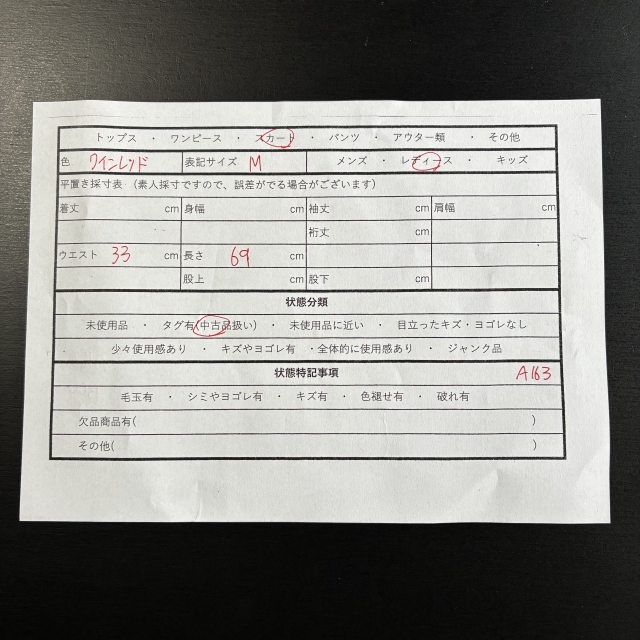 トップス ・ ワンピース ・ スカート ・ パンツ ・ アウター類 ・ その他
色 ワインレッド 表記サイズ M メンズ ・ レディース ・ キッズ
平置き採寸表 （素人採寸ですので、誤差がでる場合がございます）
着丈 cm 身幅 cm 袖丈 cm 肩幅 cm
裄丈 cm
ウエスト 33 cm 長さ 69 cm
股上 cm 股下 cm
状態分類
未使用品 ・ タグ有(中古品扱い) ・ 未使用品に近い ・ 目立ったキズ・ヨゴレなし
少々使用感あり ・ キズやヨゴレ有 ・全体的に使用感あり ・ ジャンク品
状態特記事項 A163
毛玉有 ・ シミやヨゴレ有 ・ キズ有 ・ 色褪せ有 ・ 破れ有
欠品商品有( )
その他( )